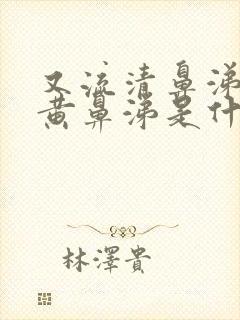 又流清鼻涕
黄鼻涕是什
林澤貴